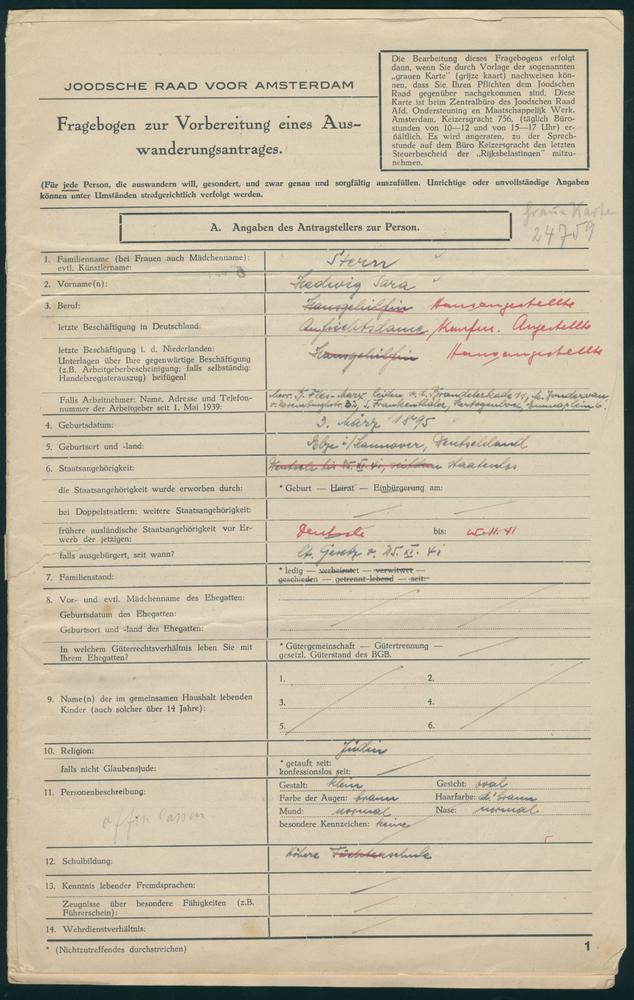 JOODSCHE RAAD VOOR AMSTERDAM
Fragebogen zur Vorbereitung eines Aus-
wanderungsantrages.
Die Bearbeitung dieses Fragebogens erfolgt
dann, wenn Sie durch Vorlage der sogenannten
„grauen Karte" (grijze kaart) nachweisen kön-
nen, dass Sie Ihren Pflichten dem Joodschen
Raad gegenüber nachgekommen sind. Diese
Karte ist beim Zentralbüro des Joodschen Raad
Afd. Ondersteuning en Maatschappelijk Werk.
Amsterdam, Keizersgracht 756, (täglich Büro-
stunden von 10—12 und von 15—17 Uhr) er-
hältlich. Es wird angeraten, zu der Sprech-
stunde auf dem Büro Keizersgracht den letzten
Steuerbescheid der „Rijksbelastingen" mitzu-
nehmen.
(Für jede Person, die auswandern will, gesondert, und zwar genau und sorgfältig auszufüllen. Unrichtige oder unvollständige Angaben
können unter Umständen strafgerichtlich verfolgt werden.
graue Karte
24759
A. Angaben des Antragstellers zur Person.
1. Familienname (bei Frauen auch Mädchenname): Stern
evtl. Künstlername:
2. Vorname(n): Hedwig Sara
3. Beruf: Hausgehilfin Hausangestellte
letzte Beschäftigung in Deutschland: Aufsichtsdame/Kaufm. Angestellte
letzte Beschäftigung i. d. Niederlanden: Hausgehilfin Hausangestellte
Unterlagen über Ihre gegenwärtige Beschäftigung
(z.B. Arbeitgeberbescheinigung; falls selbständig:
Handelsregisterauszug) beifügen!
Falls Arbeitnehmer: Name, Adresse und Telefon-
nummer der Arbeitgeber seit 1. Mai 1939:
4. Geburtsdatum: 3. März 1895
5. Geburtsort und -land: Elze i/Hannover, Deutschland
6. Staatsangehörigkeit: Deutsche bis 25. XI. 41, seitdem Staatenlos
die Staatsangehörigkeit wurde erworben durch: * Geburt — Heirat — Einbürgerung am:
bei Doppelstaatlern: weitere Staatsangehörigkeit:
frühere ausländische Staatsangehörigkeit vor Er-
werb der jetzigen: Deutsche bis: 25-11-41
falls ausgebürgert, seit wann? lt. Gesetz v. 25. XI. 41
7. Familienstand: * ledig — verheiratet — verwitwet —
geschieden — getrennt lebend — seit:
8. Vor- und evtl. Mädchenname des Ehegatten:
Geburtsdatum des Ehegatten:
Geburtsort und -land des Ehegatten:
In welchem Güterrechtsverhältnis leben Sie mit * Gütergemeinschaft — Gütertrennung —
Ihrem Ehegatten? gesetzl. Güterstand des BGB.
9. Name(n) der im gemeinsamen Haushalt lebenden
Kinder (auch solcher über 14 Jahre):
1. 2.
3. 4.
5. 6.
10. Religion: Jüdin
falls nicht Glaubensjude: * getauft seit:
konfessionslos seit:
11. Personenbeschreibung: Gestalt: klein Gesicht: oval
Farbe der Augen: braun Haarfarbe: d'braun
Mund: normal Nase: normal
besondere Kennzeichen: keine
12. Schulbildung: höhere Töchterschule
13. Kenntnis lebender Fremdsprachen:
Zeugnisse über besondere Fähigkeiten (z.B.
Führerschein):
14. Wehrdienstverhältnis:
* (Nichtzutreffendes durchstreichen)
1